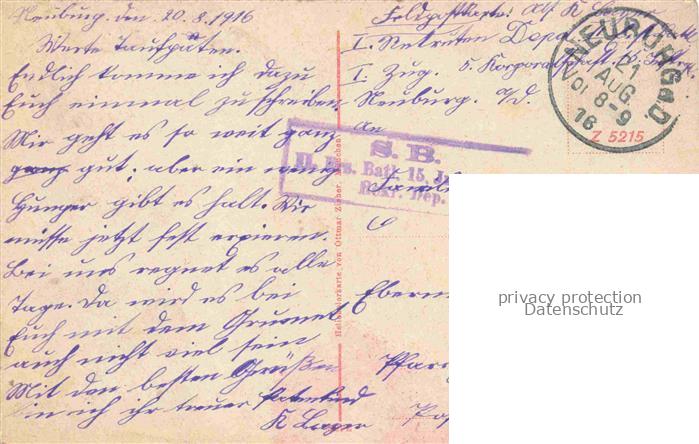 Neuburg, den 20.8.1916
Werte Taufpaten.
Endlich komme ich dazu
Euch einmal zu schreiben
Mir geht es so weit ganz
gut; aber ein wenig
Hunger gibt es halt. Wir
müsse jetzt fest exzieren.
Bei uns regnet es alle
Tage. Da wird es bei
Euch mit dem Grumet
auch nicht viel sein
Mit den besten Grüßen
bin ich ihr treuer Patenkind
K
Feldpostkarte: Abs. K
I. Rekruten Depot
I Zug. 5. Korporalschaft
Neuburg a/D.
An
Famili
Pfarr
Po
NEUBURG a.D
21
AUG
Vor 8-9
16
Z 5215
S. B.
II. Ers. Batl. 15. J
Rekr. Dep.
von Ottmar Zieher, München
privacy protection
Datenschutz